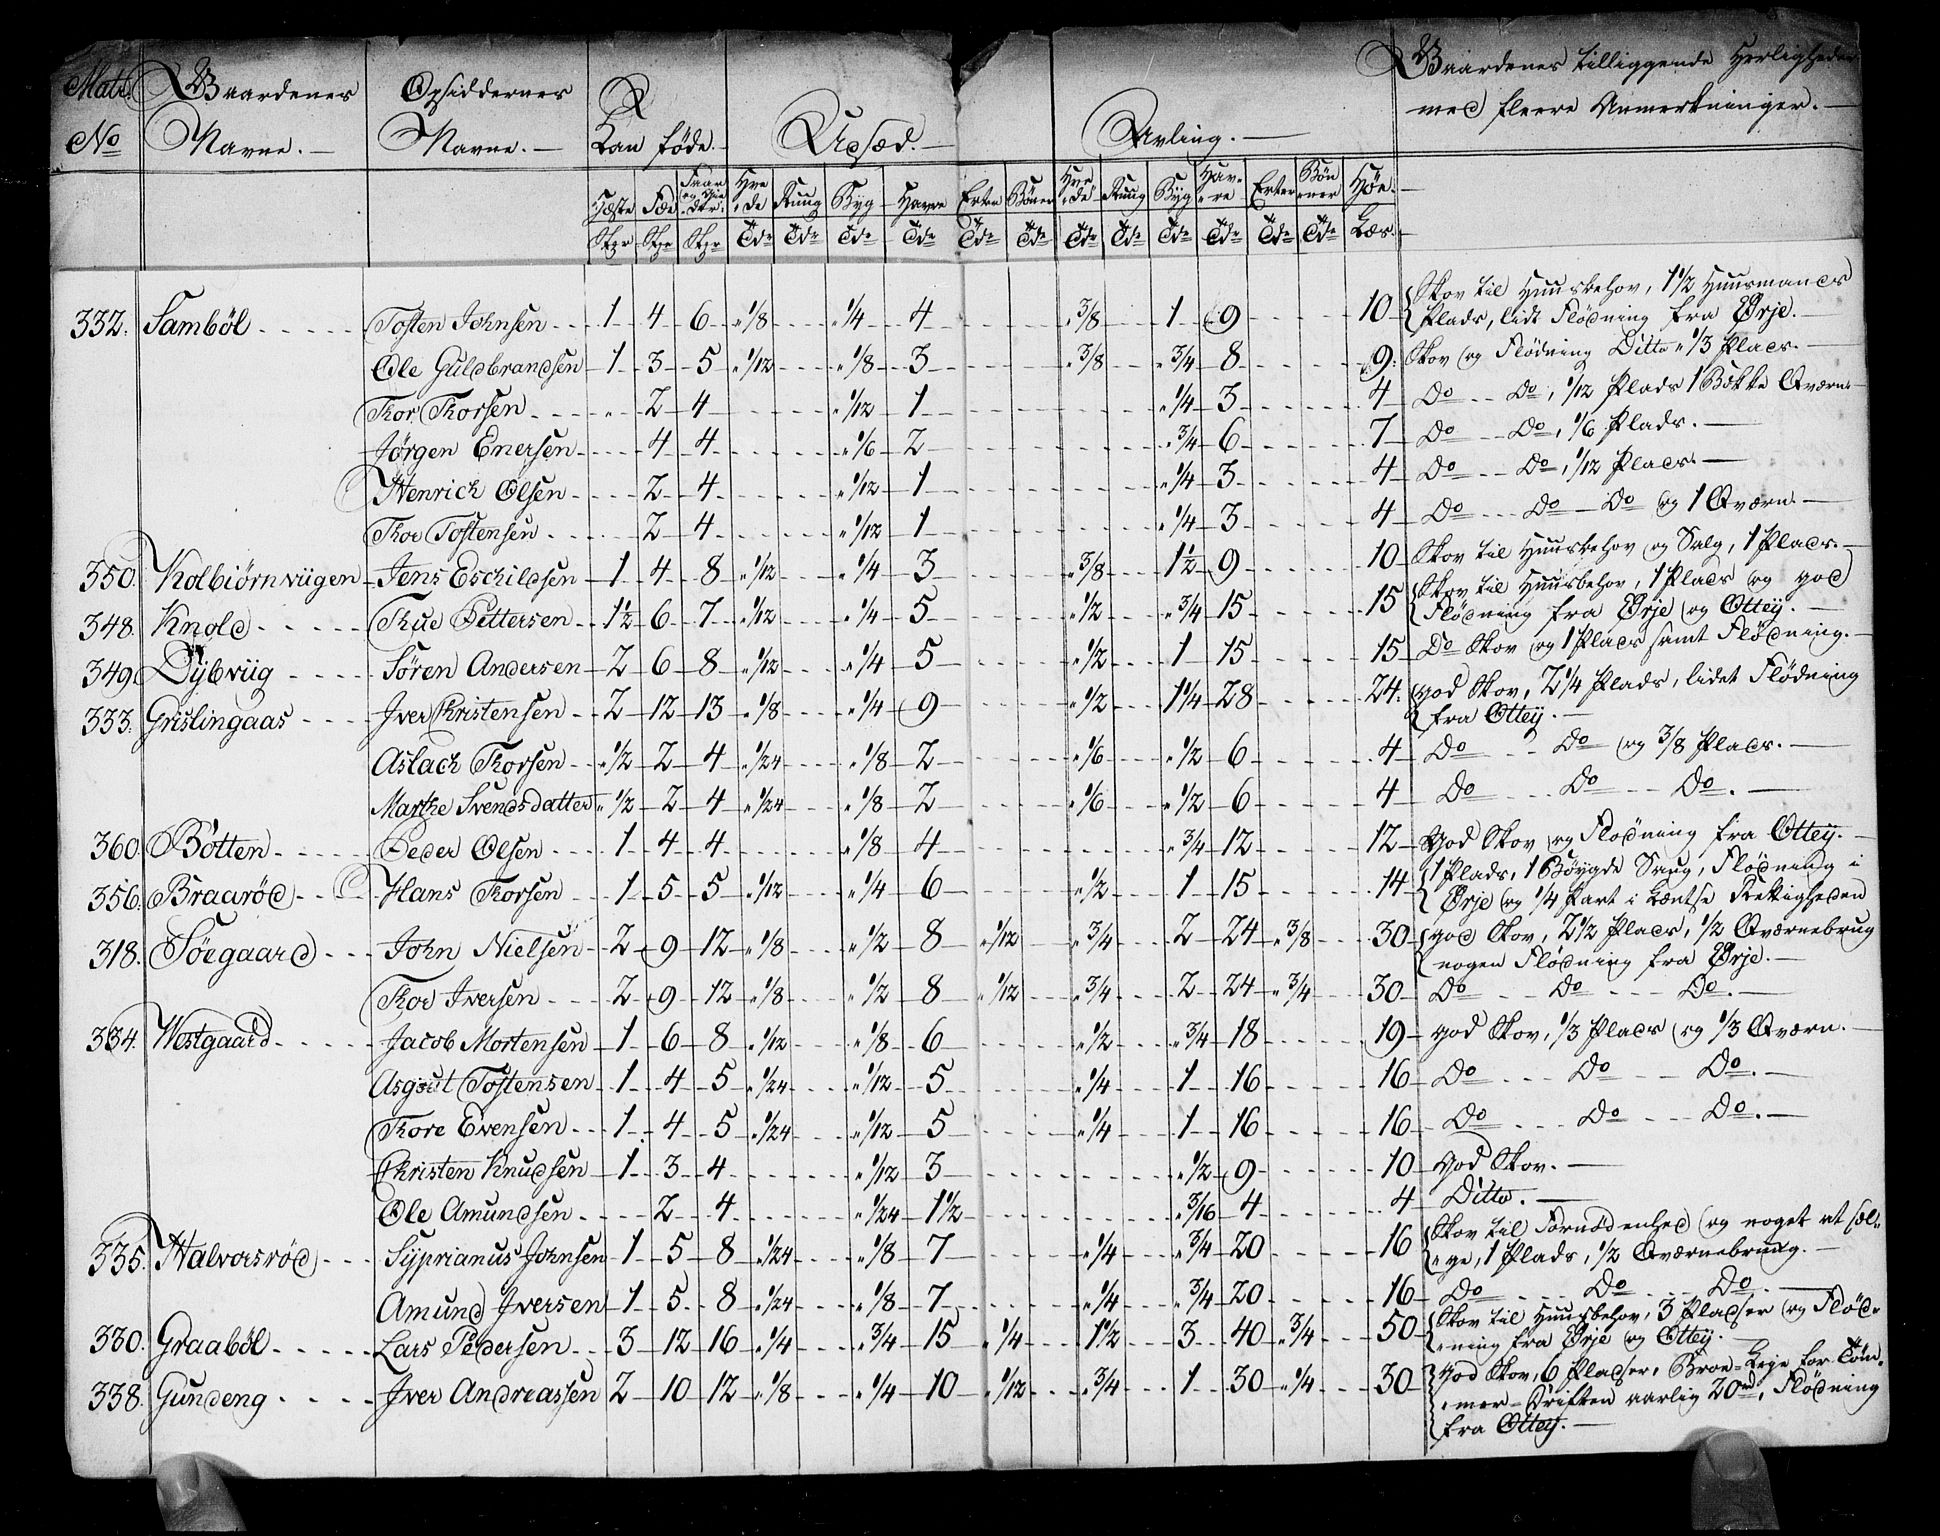 Matr. Gaardenes Opsiddernes Kan føde. Udsæd. Avling. Gaardenes tilliggende Herligheder
No Navne. Navne. med fleere Anmerkninger.
Hæste Fæe Faar og Gjeder Hvede Ruug Byg Havre Erter Bønner Hvede Rug Byg Havre Erter Bønner Høe
Stkr Stkr Stkr Tdr Tdr Tdr Tdr Tdr Tdr Tdr Tdr Tdr Tdr Tdr Tdr Læs.
332. Samböl Tosten Johnsen 1 4 6 1/8 1/4 4 3/8 1 9 10 Skov til Huusbehov, 1 1/2 Huusmands
Plads, lidt Flödning fra Ørje.
Ole Guldbrandsen 1 3 5 1/12 1/8 3 3/8 3/4 8 9 Skov og Flödning Ditto 1/3 Plads.
Thor Thorsen 2 4 1/12 1 1/4 3 4 Do Do, 1/12 Plads 1 Bække Qværn
Jørgen Enersen 4 4 1/6 2 3/4 6 7 Do Do, 1/6 Plads.
Henrich Olsen 2 4 1/12 1 1/4 3 4 Do Do, 1/12 Plads.
Thor Tostensen 2 4 1/12 1 1/4 3 4 Do Do Do og 1 Qværn.
350. Kolbiörnviigen Jens Eschildsen 1 4 8 1/12 1/4 3 3/8 1 1/2 9 10 Skov til Huusbehov og Salg, 1 Plads.
348. Knold Thue Pettersen 1 1/2 6 7 1/12 1/4 5 1/2 3/4 15 15 Skov til Huusbehov, 1 Plads og god
Flödning fra Ørje og Ottej.
349. Dybviig Sören Andersen 2 6 8 1/12 1/4 5 1/2 1 15 15 Do Skov og 1 Plads samt Flödning.
333. Grislingaas Iver Christensen 2 12 13 1/8 1/4 9 1/2 1 1/4 28 24. god Skov, 2 1/4 Plads, lidet Flödning
fra Ottej.
Aslach Thorsen 1/2 2 4 1/24 1/8 2 1/6 1/2 6 4 Do Do og 3/8 Plads.
Marthe Svendsdatter 1/2 2 4 1/24 1/8 2 1/6 1/2 6 4 Do Do Do.
360. Bötten Peder Olsen 1 4 4 1/8 4 3/4 12 12 God Skov og Flodning fra Ottej.
356. Braaröd Hans Thorsen 1 5 5 1/12 1/4 6 1/2 1 15 14 1 Plads, 1 Böygde Saug, Flödning i
Ørje og 1/4 Part i Lændse Rettigheden
318. Söegaard John Nielsen 2 9 12 1/8 1/2 8 1/12 3/4 2 24 3/8 30 god Skov, 2 1/2 Plads, 1/2 Qværnebrug
nogen Flödning fra Ørje.
Thor Iversen 2 9 12 1/8 1/2 8 1/12 3/4 2 24 3/4 30 Do Do Do.
334. Westgaard Jacob Mortensen 1 6 8 1/12 1/8 6 1/2 3/4 18 19 god Skov, 1/3 Plads og 1/3 Qværn.
Asgout Tostensen 1 4 5 1/24 1/12 5 1/4 1 16 16 Do Do Do.
Thore Evensen 1 4 5 1/24 1/12 5 1/4 1 16 16 Do Do Do.
Christen Knudsen 1 3 4 1/12 3 1/2 9 10 god Skov.
Ole Amundsen 2 4 1/24 1 1/2 3/16 4 4 Ditto.
335. Halvorsröd Syprianus Johnsen 1 5 8 1/24 1/8 7 1/4 3/4 20 16 Skov til Fornödenhed og noget at sæl-
ge, 1 Plads, 1/2 Qværnebrug.
Amund Iversen 1 5 8 1/24 1/8 7 1/4 3/4 20 16 Do Do Do
330. Graaböl Lars Pedersen 3 12 16 1/4 3/4 15 1/4 1 1/2 3 40 3/4 50 Skov til Huusbehov, 3 Pladser og Flöd-
ning fra Ørje og Ottej.
338. Gundeng Iver Andreassen 2 10 12 1/8 1/4 10 1/12 3/4 1 30 1/4 30 god Skov, 6 Pladser, Broe-Leje for Töm-
mer-Driften aarlig 20rd, Flödning
fra Ottej.